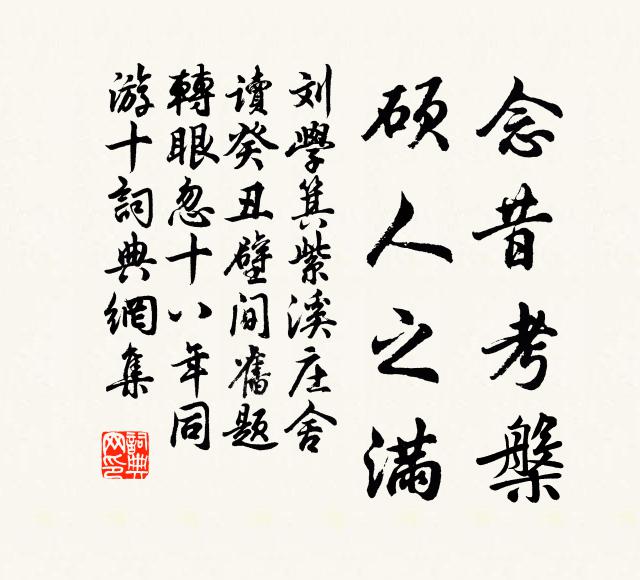 念昔考槃
硕人之满
刘學箕紫溪庄舍
讀癸丑壁间舊题
轉眼忽十八年同
游十詞典網集
詞典网印